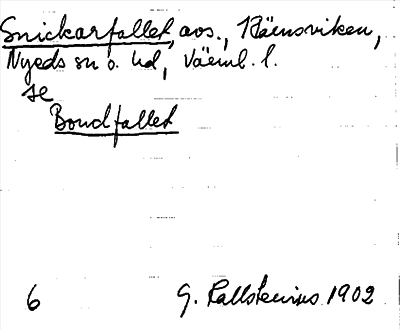 Snickarfallet, avs., Räensviken,
Nyeds sn o. hd, Värml. l.
se
Bondfallet
6 G. Kallstenius 1902